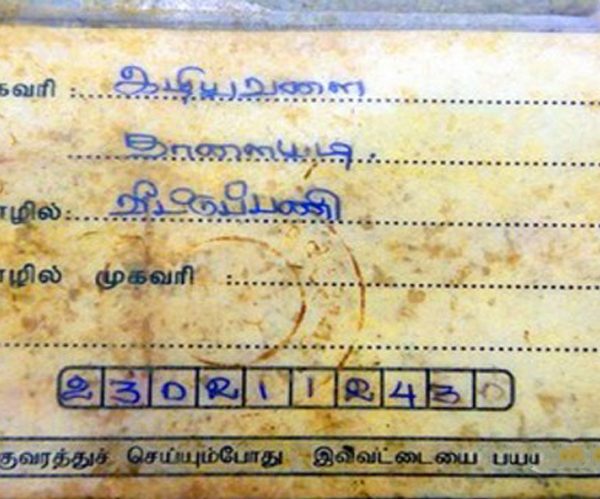 கவரி : உழியவளை
தாளையடி.
ழில்: வீட்டுப்பணி
ழில் முகவரி :
2 3 0 2 1 1 2 4 3 0
குவரத்துச் செய்யும்போது இவ்வட்டையை பய